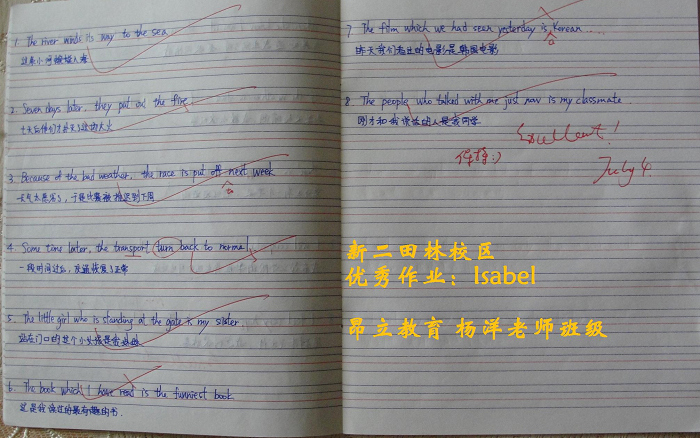 1. The river winds its way to the sea.
2. Seven days later, they put out the fire.
3. Because of the bad weather, the race is put off next week
天气太恶劣了,于是比赛被推迟到下周
4. Some time later, the transport turn back to normal.
一段时间过后,交通恢复了正常
5. The little girl who is standing at the gate is my sister.
站在门口的那个小女孩是我
6. The book which I have read is the funniest book
这是我读过的最有趣的书.
7 The film which we had seen yesterday is Korean.....
a
昨天我们看过的电影是韩国电影
8. The people who talked with me just now is my classmate.
刚才和我谈话的人是我同学
Excellent!
保持:)
July 4.
新二田林校区
优秀作业:Isabel
昂立教育 杨洋老师班级